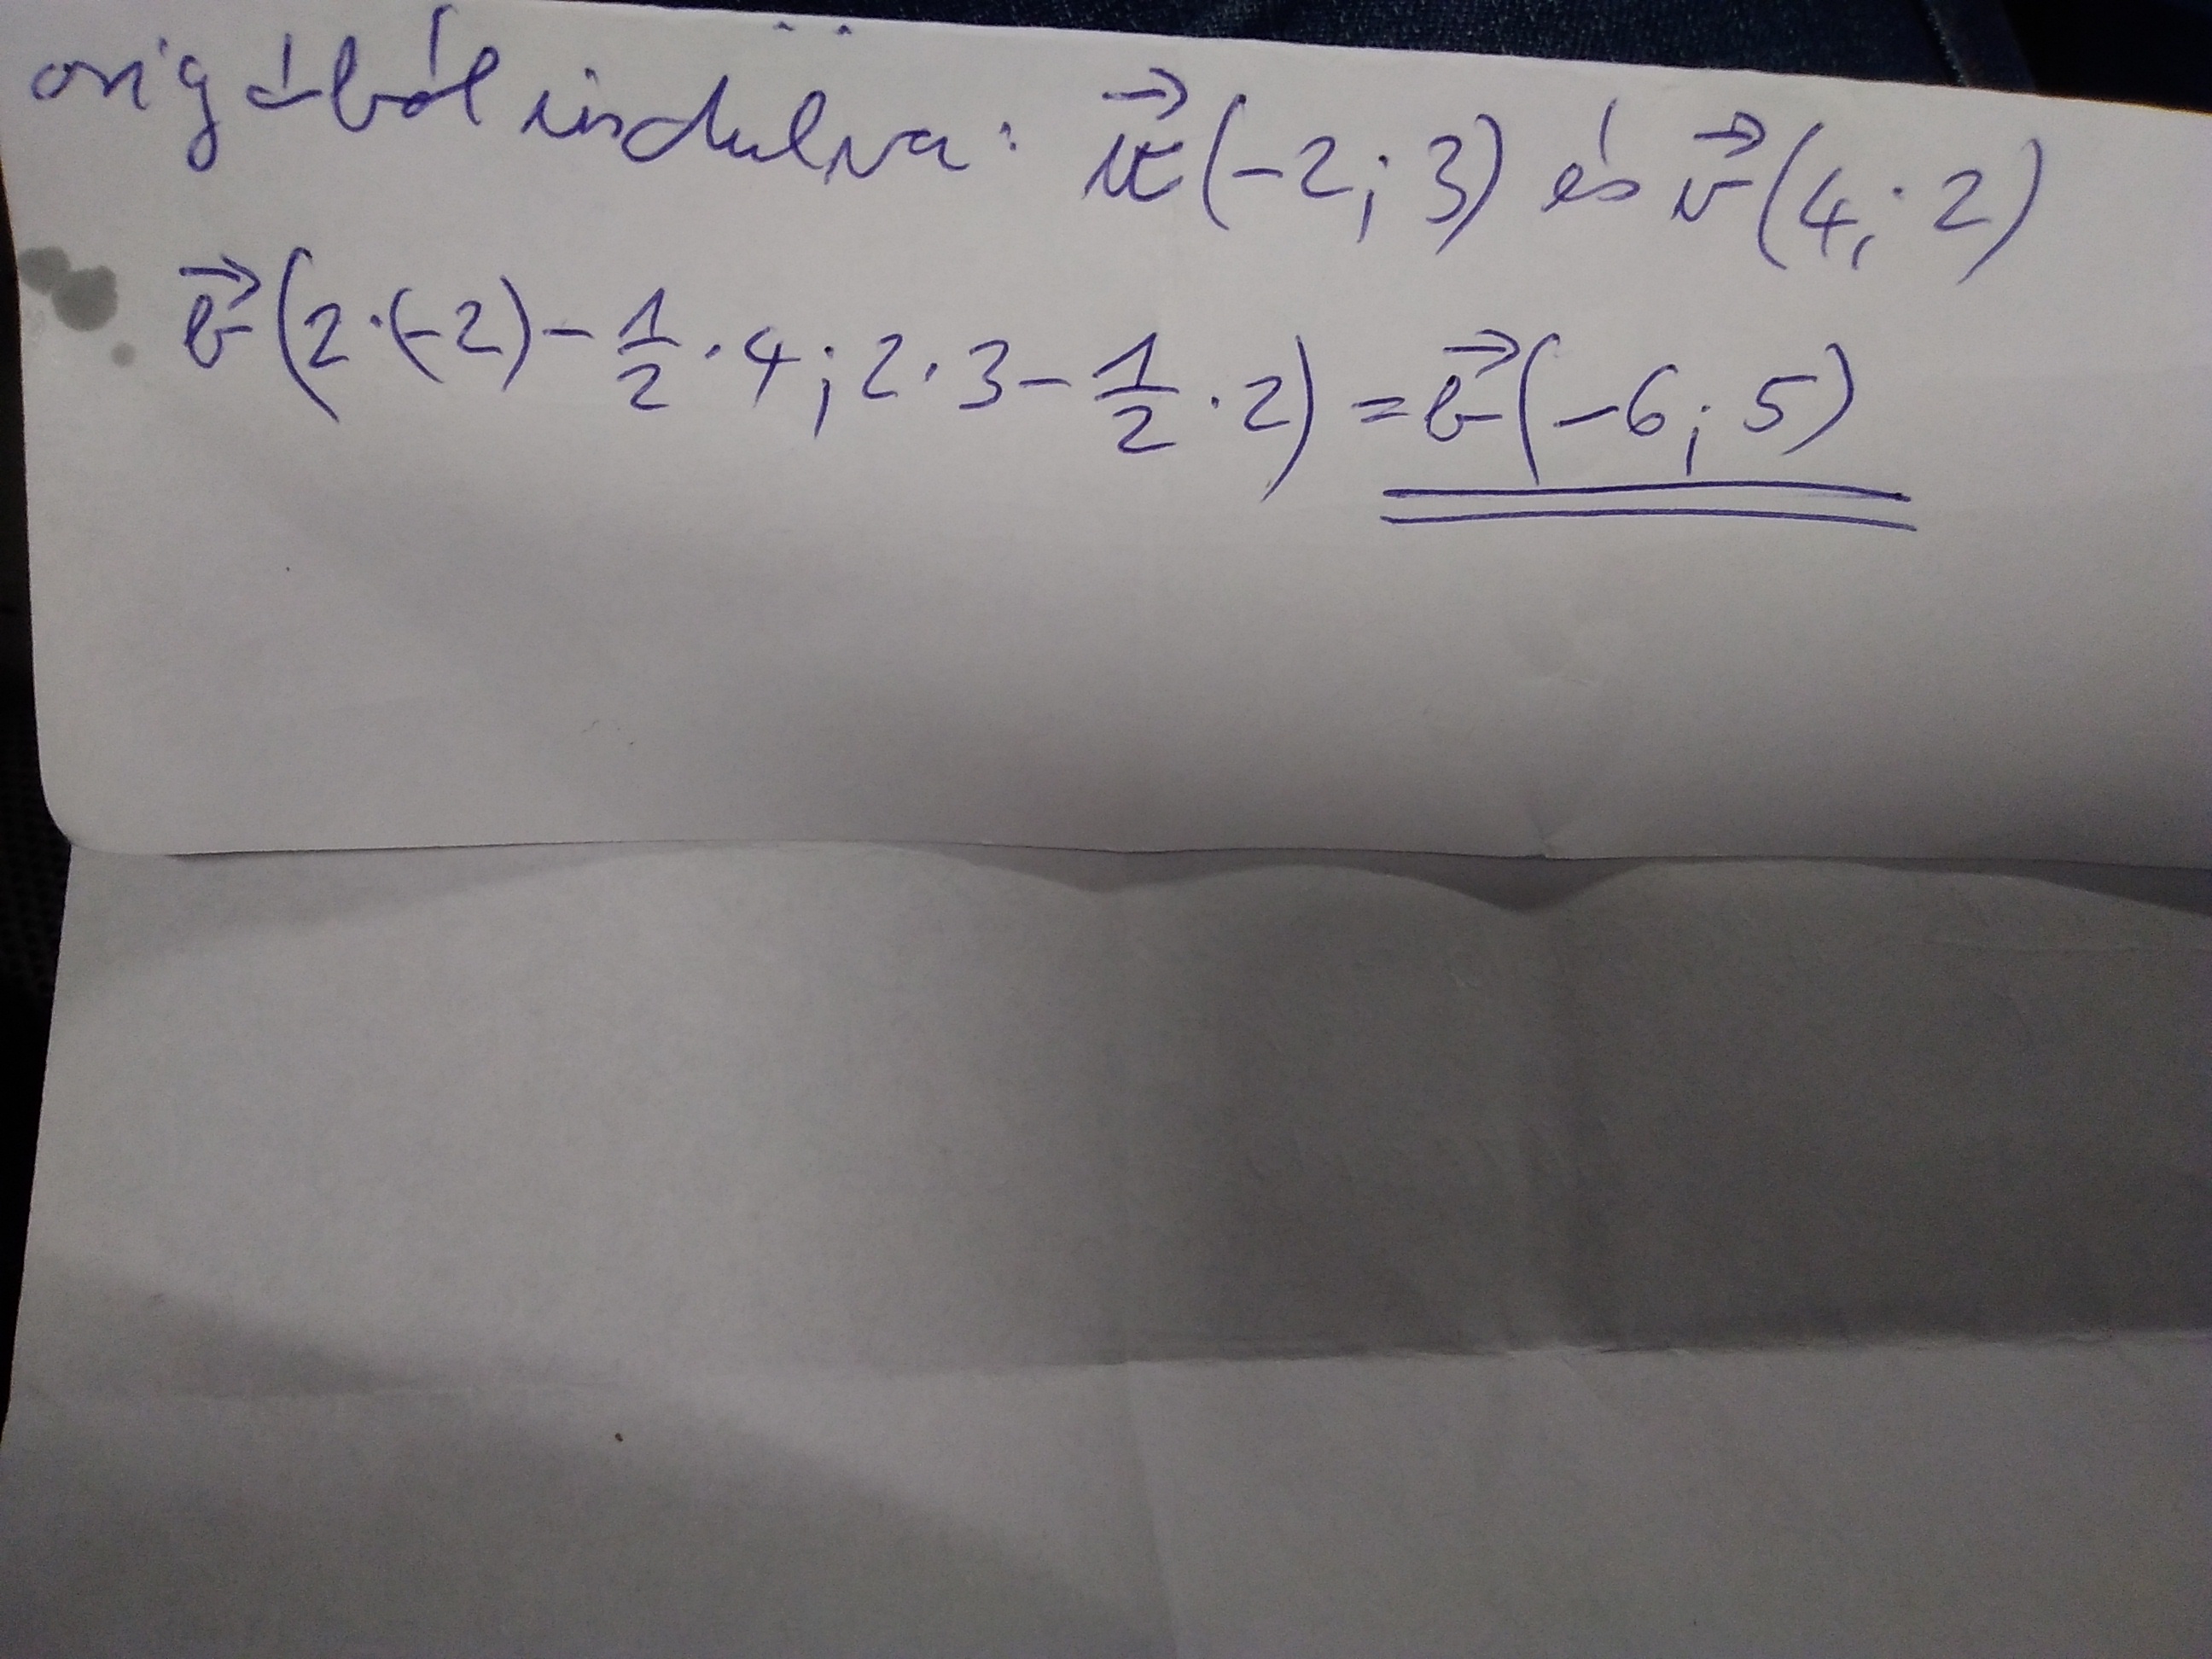 origóból indulva: u⃗(-2; 3) és v⃗(4; 2)
b⃗(2·(-2)-1/2·4; 2·3-1/2·2) = b⃗(-6; 5)